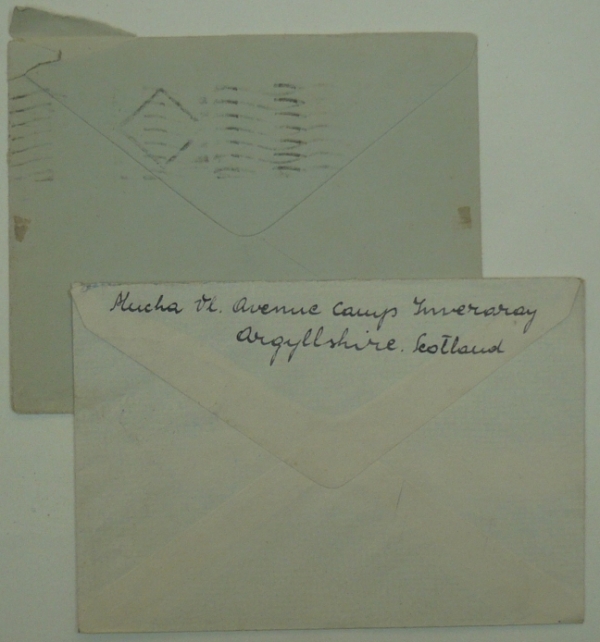 Mucha Vl. Avenue Camp Inveraray
Argyllshire. Scotland